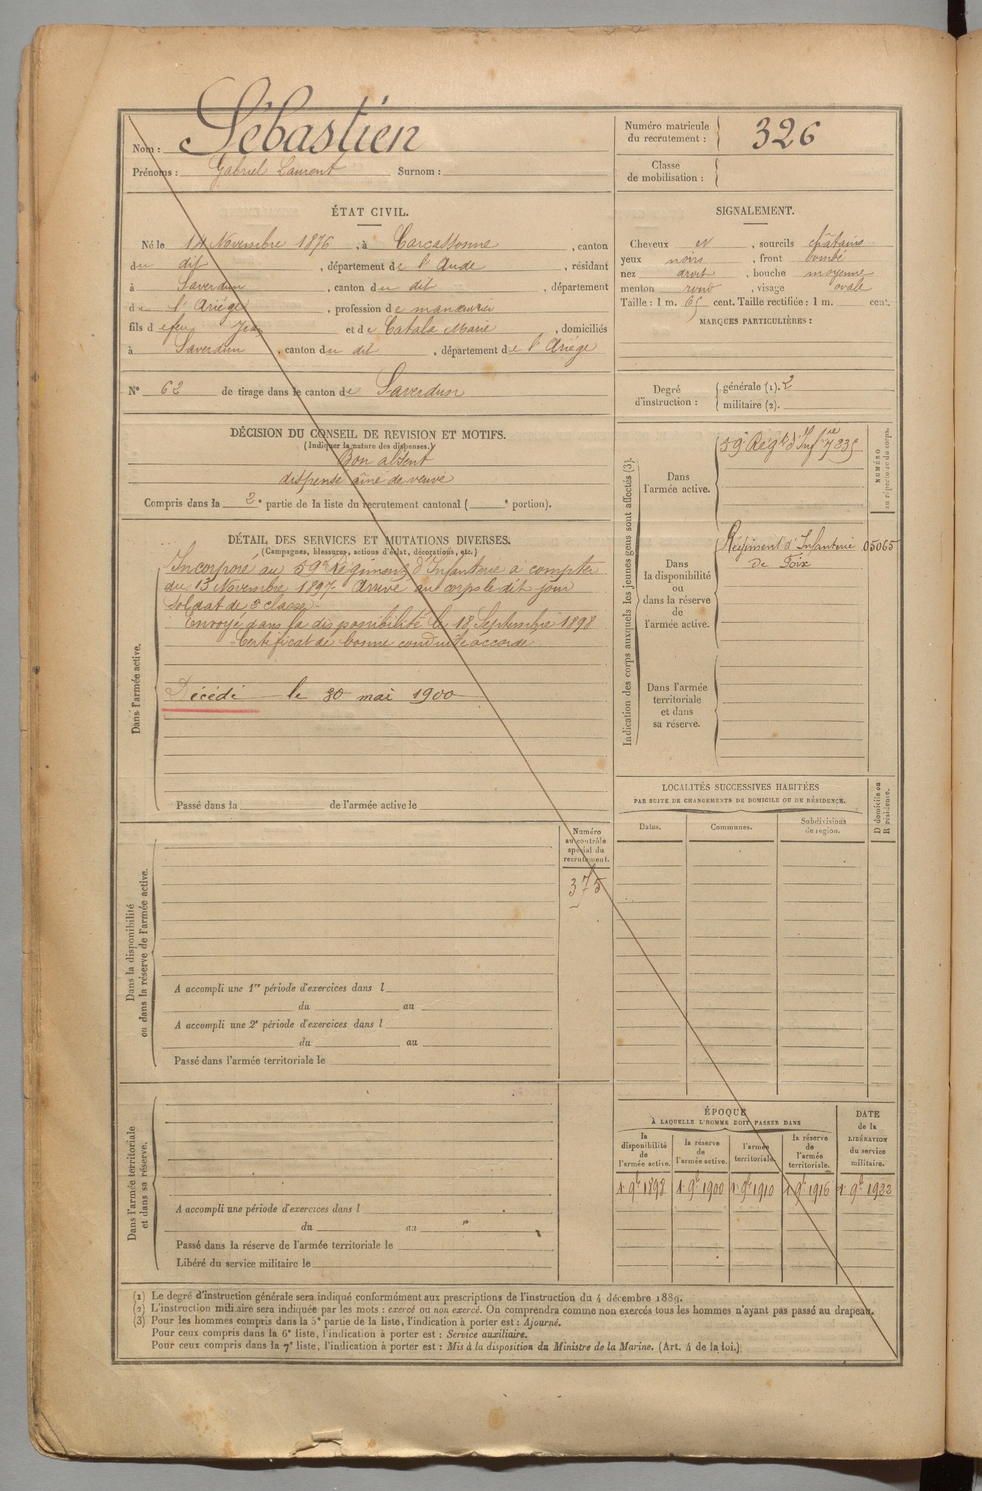 Nom : Sébastien
Prénoms : Gabriel Laurent Surnom :
Numéro matricule du recrutement : 326
Classe de mobilisation :
ÉTAT CIVIL.
Né le 14 Novembre 1876, à Carcassonne, canton
du dit, département de l'Aude, résidant
à Saverdun, canton du dit, département
de l'Ariège, profession de manœuvrier
fils d efeu Jean et de Catala Marie, domiciliés
à Saverdun, canton du dit, département de l'Ariège
N° 62 de tirage dans le canton de Saverdun
SIGNALEMENT.
Cheveux et, sourcils châtains
yeux noirs, front bombé
nez droit, bouche moyenne
menton rond, visage ovale
Taille : 1 m. 65 cent. Taille rectifiée : 1 m. cent.
MARQUES PARTICULIÈRES :
Degré d'instruction : générale (1). 2
militaire (2).
DÉCISION DU CONSEIL DE REVISION ET MOTIFS.
(Indiquer la nature des dispenses.)
Bon absent
dispensé aîné de veuve
Compris dans la 2e partie de la liste du recrutement cantonal ( e portion).
DÉTAIL DES SERVICES ET MUTATIONS DIVERSES.
(Campagnes, blessures, actions d'éclat, décorations, etc.)
Dans l'armée active.
Incorporé au 59e régiment d'Infanterie à compter
du 13 Novembre 1897. Arrivé au corps le dit jour
soldat de 2e classe.
Envoyé dans la disponibilité le 18 Septembre 1898
Certificat de bonne conduite accordé
Décédé le 30 mai 1900
Passé dans la de l'armée active le
Indication des corps auxquels les jeunes gens sont affectés (3).
NUMÉRO au répertoire du corps.
Dans l'armée active.
59e Régt d'Infrie 7235
Dans la disponibilité ou dans la réserve de l'armée active.
Régiment d'Infanterie 05065
de Foix
Dans l'armée territoriale et dans sa réserve.
LOCALITÉS SUCCESSIVES HABITÉES
PAR SUITE DE CHANGEMENTS DE DOMICILE OU DE RÉSIDENCE.
Dates. Communes. Subdivisions de région. D domicile ou R résidence.
Numéro au contrôle spécial du recrutement.
375
Dans la disponibilité ou dans la réserve de l'armée active.
A accompli une 1re période d'exercices dans l
du au
A accompli une 2e période d'exercices dans l
du au
Passé dans l'armée territoriale le
Dans l'armée territoriale et dans sa réserve.
A accompli une période d'exercices dans l
du au
Passé dans la réserve de l'armée territoriale le
Libéré du service militaire le
ÉPOQUE
À LAQUELLE L'HOMME DOIT PASSER DANS
la disponibilité de l'armée active.
la réserve de l'armée active.
l'armée territoriale.
la réserve de l'armée territoriale.
DATE de la LIBÉRATION du service militaire.
1r 9bre 1898 1r 9bre 1900 1r 9bre 1910 1r 9bre 1916 1r 9bre 1922
(1) Le degré d'instruction générale sera indiqué conformément aux prescriptions de l'instruction du 4 décembre 1889.
(2) L'instruction militaire sera indiquée par les mots : exercé ou non exercé. On comprendra comme non exercés tous les hommes n'ayant pas passé au drapeau.
(3) Pour les hommes compris dans la 5e partie de la liste, l'indication à porter est : Ajourné.
Pour ceux compris dans la 6e liste, l'indication à porter est : Service auxiliaire.
Pour ceux compris dans la 7e liste, l'indication à porter est : Mis à la disposition du Ministre de la Marine. (Art. 4 de la loi.)